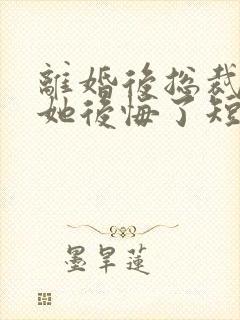 離婚後总裁
她後悔了短
墨旱莲